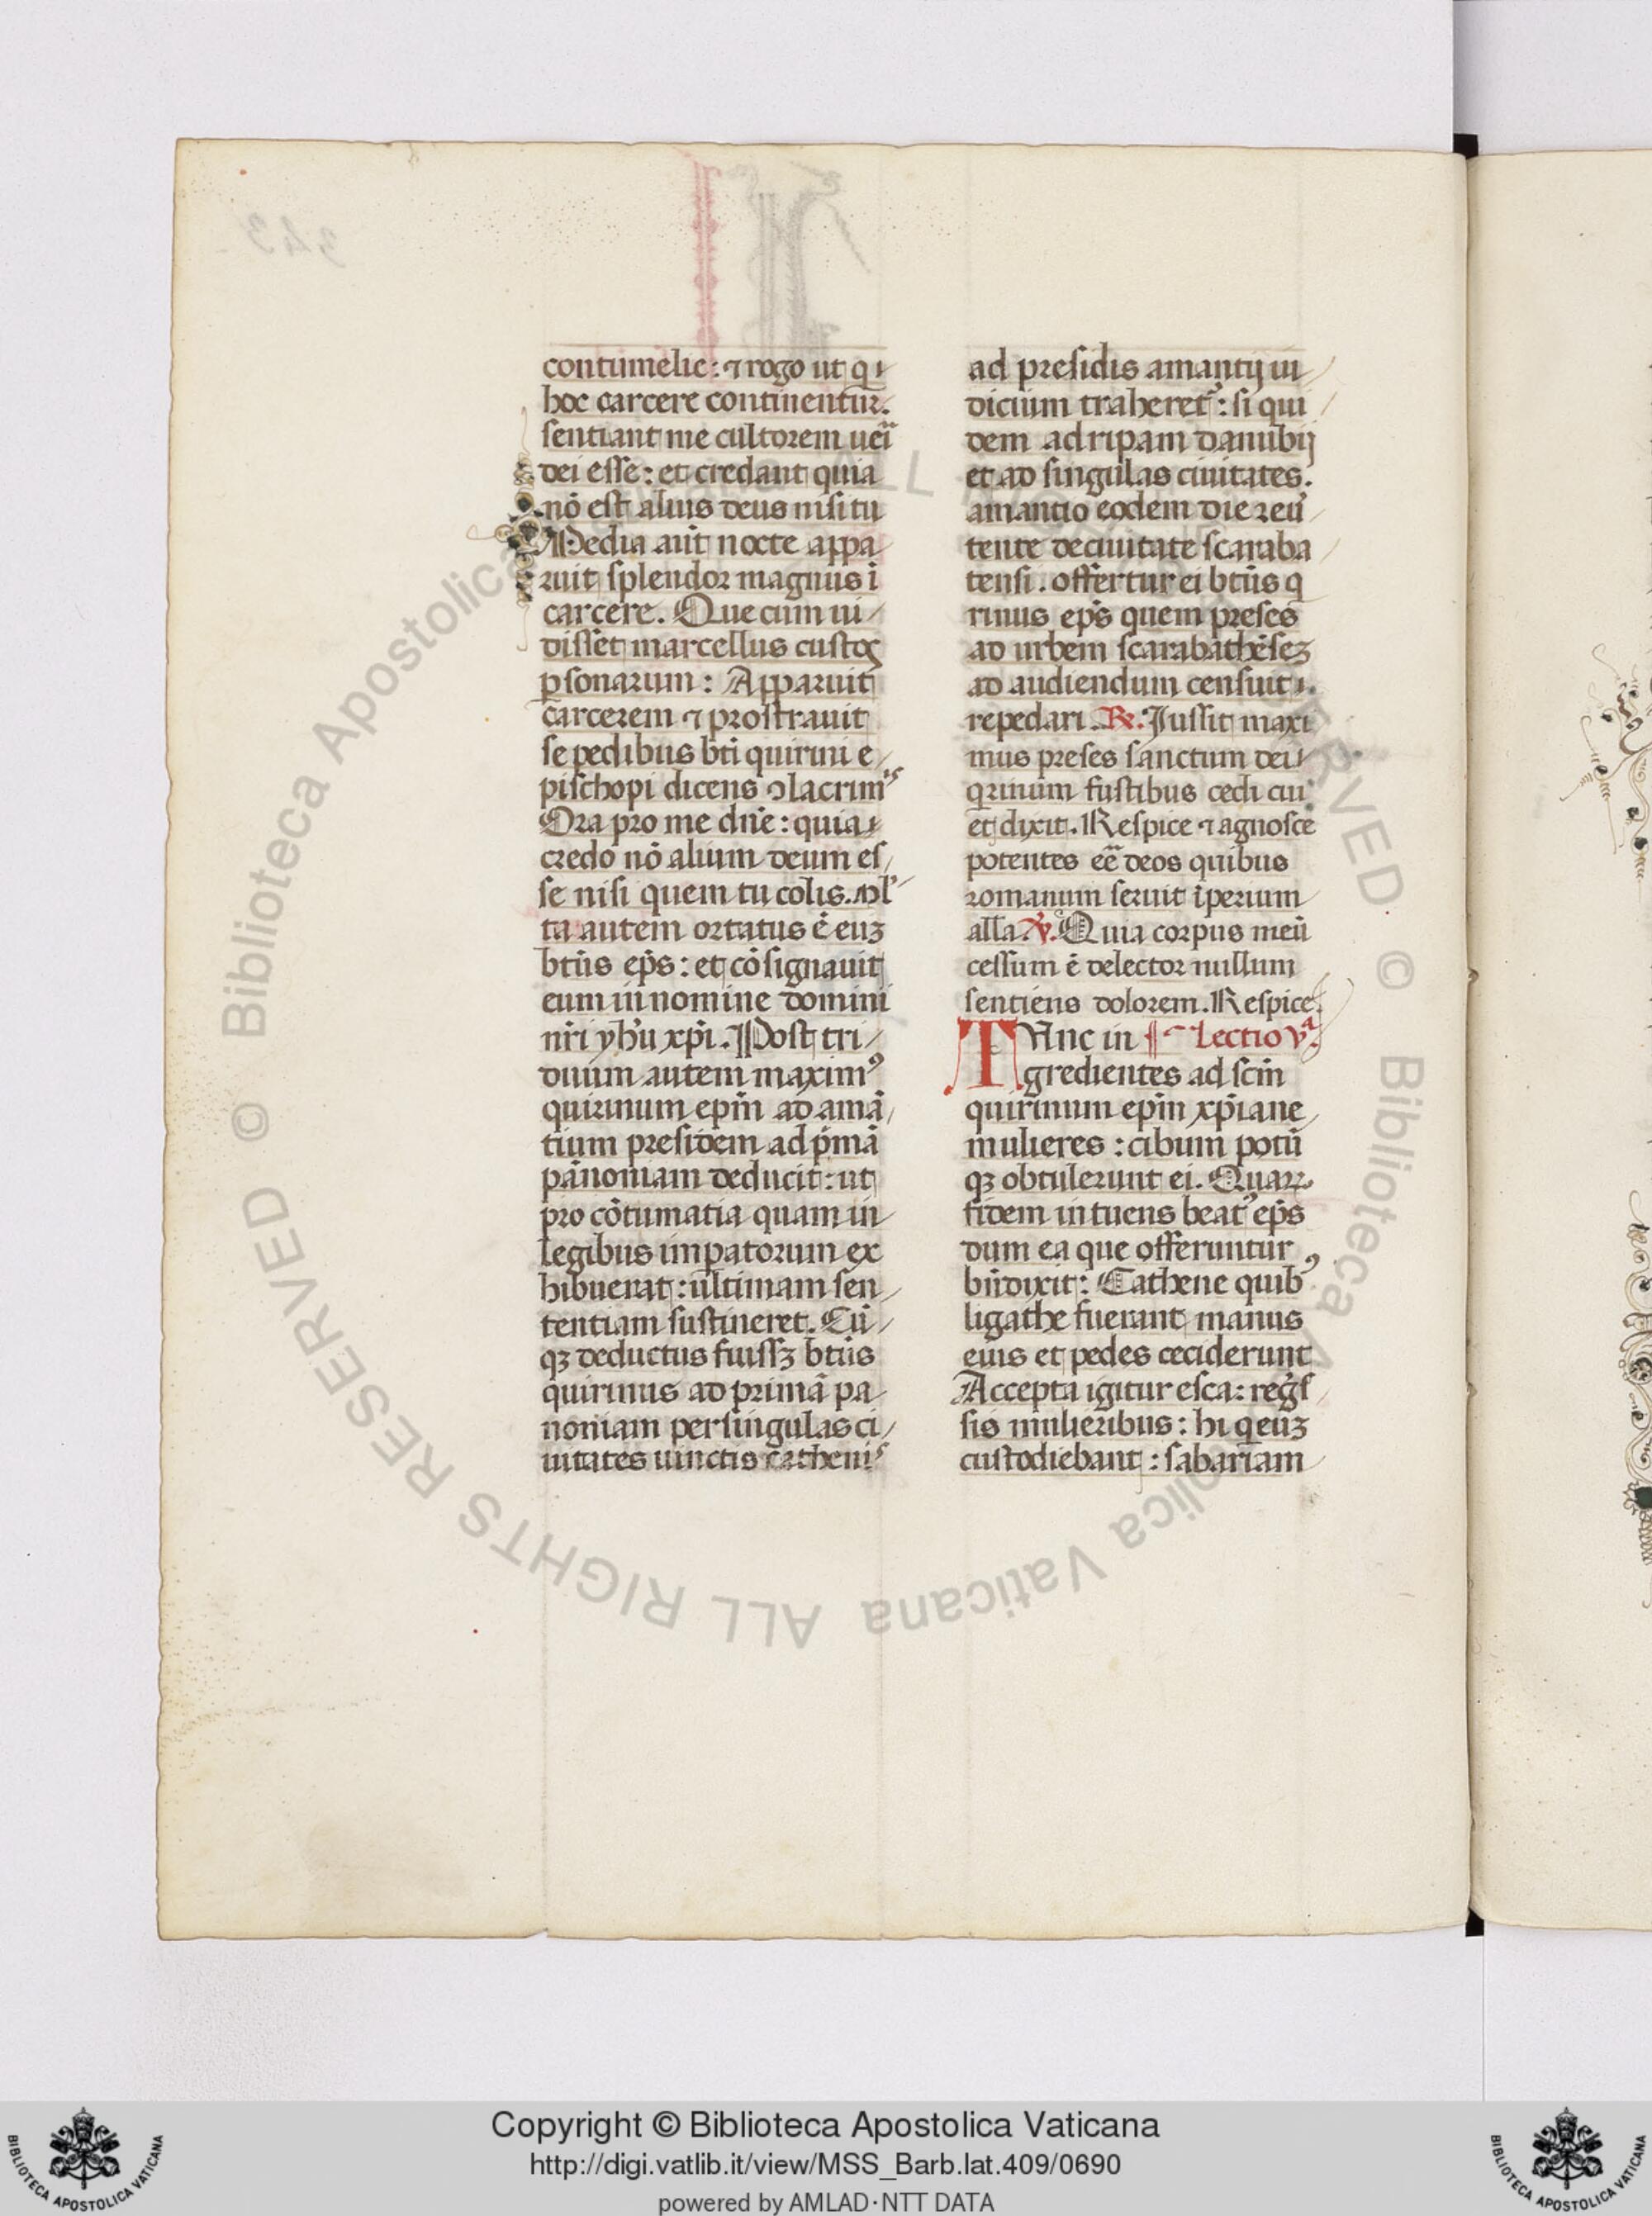 contumelie: ⁊ rogo ut qͥ
hoc carcere continentur.
sentiant me cultorem ueri
dei esse: et credant quia
nō est alius deus nisi tu
Media aūt nocte appa
ruit splendor magnus ī
carcere. Que cum ui
disset marcellus custos
ꝑsonarum: Apparuit
carcerem ⁊ prostrauit
se pedibus bti quirini e
pischopi dicens ꝯ lacrimis
Ora pro me dn̄e: quia
credo nō alium deum es
se nisi quem tu colis. Ml
ta autem ortatus ē euꝫ
btūs ep̄s: et cōsignauit
eum in nomine domini
nr̄i yhū xp̄i. Post tri
duum autem maximꝰ
quirinum epm̄ ad amā
tium presidem ad pͥmā
pānoniam deducit: ut
pro cōtumatia quam in
legibus impatorum ex
hibuerat: ultimam sen
tentiam sustineret. Cū
qꝫ deductus fuissꝫ btūs
quirinus ad primā pa
noniam per singulas ci
uitates uinctis cathenis
ad presidis amantij iu
dicium traheret᷑: si qui
dem ad ripam danubij
et ad singulas ciuitates.
amantio eodem die reū
tente de ciuitate scaraba
tensi. offertur ei btūs q
rinus ep̄s quem preses
ad urbem scarabathēseꝫ
ad audiendum censuit
repedari. ℟. Jussit maxi
mus preses sanctum dei
qͥrinum fustibus cedi cui
et dixit. Respice ⁊ agnosce
potentes eē deos quibus
romanum seruit īperium
alla ℣. Quia corpus meū
cessum ē delector nullum
sentiens dolorem. Respice.
TUnc in ¶ Lectio vᵃ
gredientes ad scm̄
quirinum epm̄ xp̄iane
mulieres: cibum potū
qꝫ obtulerunt ei. Quarꝝ
fidem intuens beatꝰ ep̄s
dum ea que offeruntur
bn̄dixit: Cathene quibꝰ
ligathe fuerant manus
eius et pedes ceciderunt
Accepta igitur esca: regͣs
sis mulieribus: hi q euꝫ
custodiebant: sabariam
Copyright © Biblioteca Apostolica Vaticana
http://digi.vatlib.it/view/MSS_Barb.lat.409/0690
powered by AMLAD·NTT DATA
© Biblioteca Apostolica Vaticana ALL RIGHTS RESERVED
BIBLIOTECA APOSTOLICA VATICANA
BIBLIOTECA APOSTOLICA VATICANA